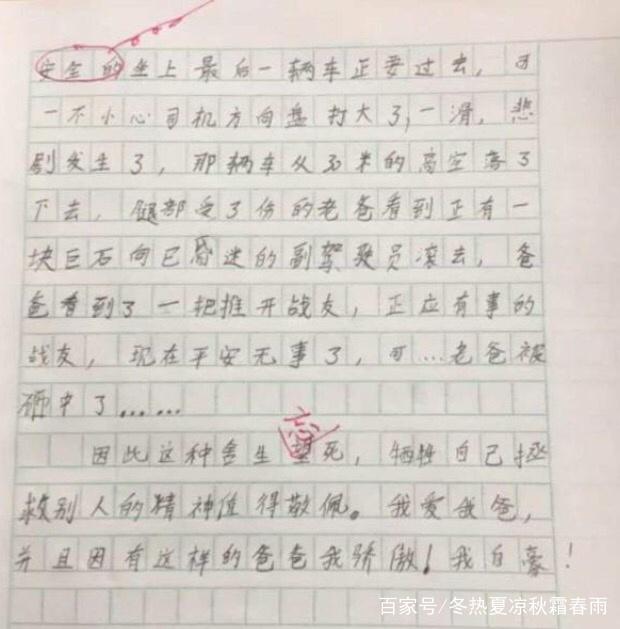 安全的坐上最后一辆车正要过去，可
一不小心司机方向盘打大了，一滑，悲
剧发生了，那辆车从30米的高空落了
下去，腿部受了份的老爸看到正有一
块巨石向已昏迷的副驾驶员滚去，爸
爸看到了一把推开战友，正应有事的
战友，现在平安无事了，可...老爸被
砸中了......
忘
因此这种舍生望死，牺牲自己拯
救别人的精神值得敬佩。我爱我爸，
并且因有这样的爸爸我骄傲！我自豪！
百家号/冬热夏凉秋霜春雨